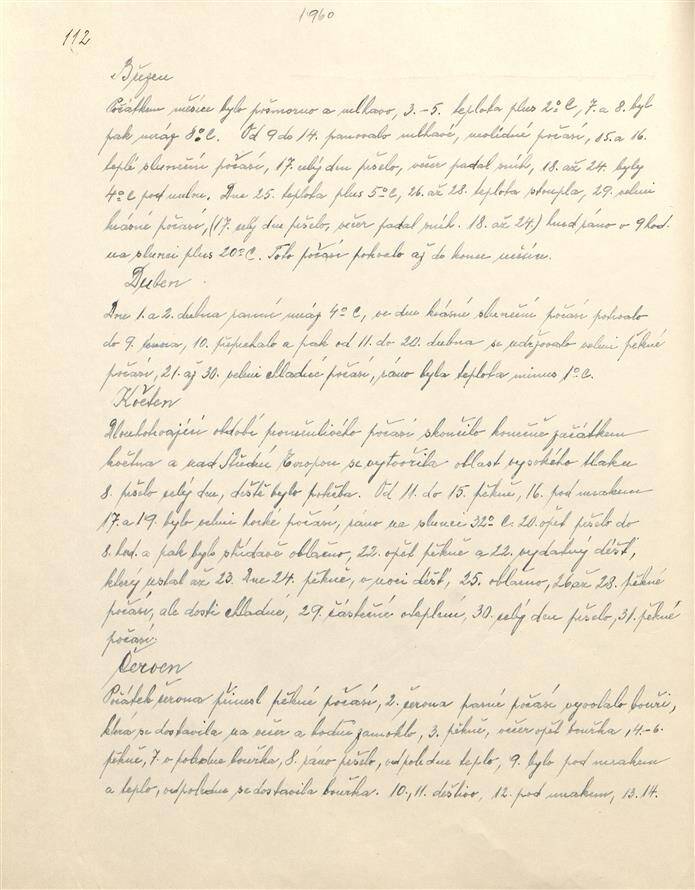 1960
112
Březen
Počátkem měsíce bylo pošmorno a mlhavo, 3.-5. teplota plus 2°C, 7. a 8. byl
pak mráz 8°C. Od 9 do 14. panovalo mlhavé, neklidné počasí, 15. a 16.
teplé sluneční počasí, 17. celý den pršelo, večer padal sníh, 18. až 24. byly
4°C pod nulou. Dne 25. teplota plus 5°C, 26. až 28. teplota stoupla, 29. velmi
krásné počasí, (17. celý den pršelo, večer padal sníh. 18. až 24.) hned ráno v 9 hod.
na slunci plus 20°C. Toto počasí potrvalo až do konce měsíce.
Duben
Dne 1. a 2. dubna ranní mráz 4°C, ve dne krásné sluneční počasí potrvalo
do 9. února, 10. přepršhalo a pak od 11. do 20. dubna se udržovalo velmi pěkné
počasí, 21. až 30. velmi chladné počasí, ráno byla teplota minus 1°C.
Květen
Dlouhotrvající období proměnlivého počasí skončilo konečně začátkem
května a nad Střední Evropou se vytvořila oblast vysokého tlaku
8. pršelo celý den, deště bylo potřeba. Od 11. do 15. pěkně, 16. pod mrakem
17. a 19. bylo velmi horké počasí, ráno na slunci 32°C. 20. opět pršelo do
8. hod. a pak bylo střídavě oblačno, 22. opět pěkně a 22. vydatný déšť,
který ustal až 23. Dne 24. pěkně, v noci déšť, 25. oblačno, 26 až 28. pěkné
počasí, ale dosti chladné, 29. částečné oteplení, 30. celý den pršelo, 31. pěkné
počasí.
Červen
Počátek června přinesl pěkné počasí, 2. června parné počasí vyvolalo bouři,
která se dostavila na večer a hodně zamoklo, 3. pěkně, večer opět bouřka, 4.-6.
pěkně, 7. v poledne bouřka, 8. ráno pršelo, odpoledne teplo, 9. bylo pod mrakem
a teplo, odpoledne se dostavila bouřka. 10., 11. deštivo, 12. pod mrakem, 13. 14.